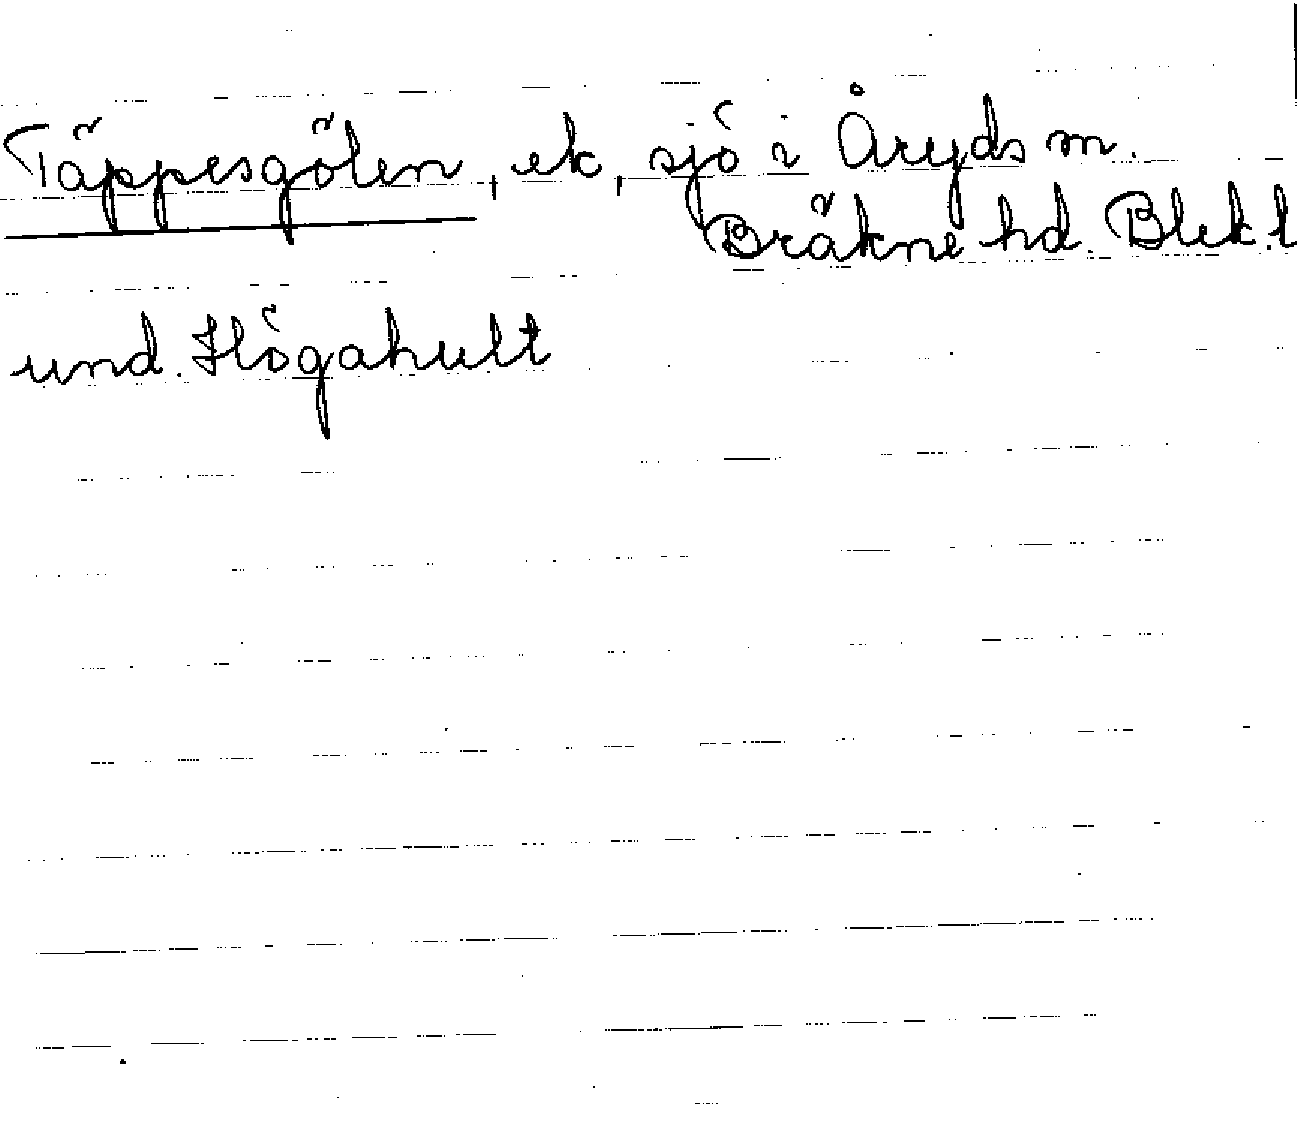 Täppesgölen, ek, sjö i Åryds m.
Bräkne hd. Blek. l
und. Högahult